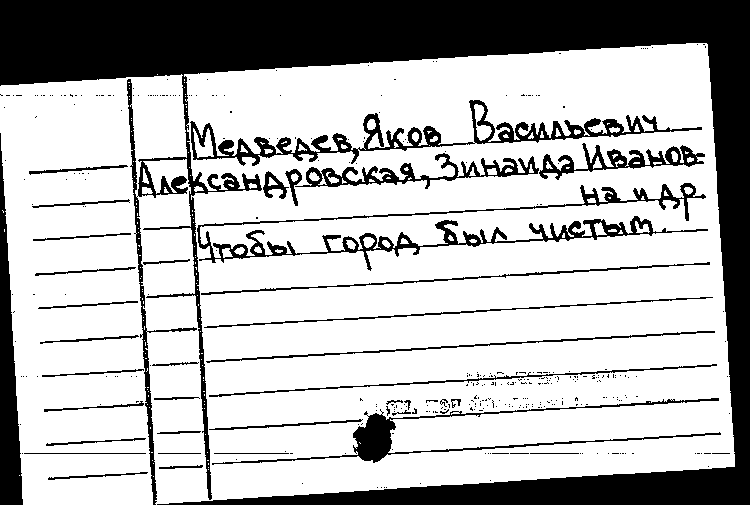 Медведев, Яков Васильевич.
Александровская, Зинаида Иванов-
на и др.
Чтобы город был чистым.